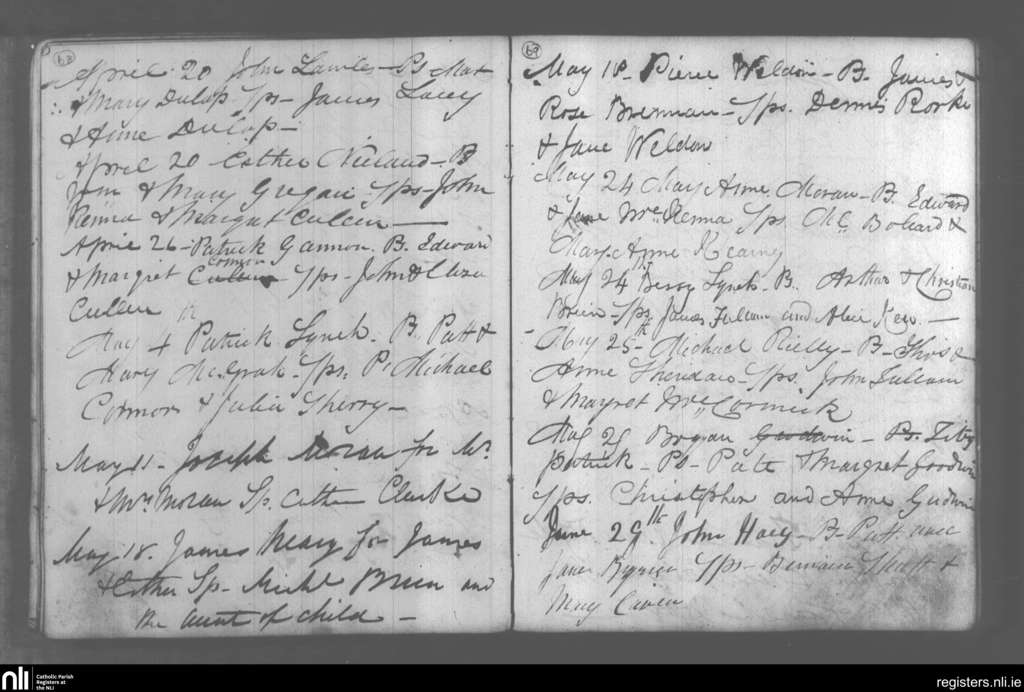 68
April 20 John Lawles Ps Mat
& Mary Dulap Sps - James Lacey
& Anne Dulap -
April 20 Cather Nieland - B
John & Mary Gregan Sps - John
Kenna & Margat Cullen -
April 26 - Patrick Gannon. B. Edward
Connor
& Margret Cullen Sps - John & Eliza
Cullen
May 4th Patrick Lynch. B. Patt &
Mary McGrath - Sps, P. Michael
Connor & Julia Sherry -
May 11. Joseph Moran for Mr.
& Mrs Moran Sp. Cathn Clarke
May 18. James Neary for James
& Esther Sp - Michl Breen and
the aunt of child -
69
May 18. Pierce Weldon - B. James &
Rose Brennan - Sps. Dennis Rorke
& Jane Weldon
May 24 Mary Anne Moran - B. Edward
& Jane McKenna Sps. &
Mary Anne Kearney
May 24th Lynch - B. Arthur & Christian
Brien - Sps. James Fullam and Alice Kew. -
May 25th - Michael Rielly - B - Thos &
Anne Sheridan - Sps. John Fullam
& Margret McCormick
May 29 Bryan Goodwin - B.
Patrick - Ps - Patt & Margret Goodwin
Sps. Christopher and Anne Gudwin
June 29th. John Hoey - B Patt and
Jane Sps - &
Mary Caven
nli
Catholic Parish
Registers at
the NLI
registers.nli.ie